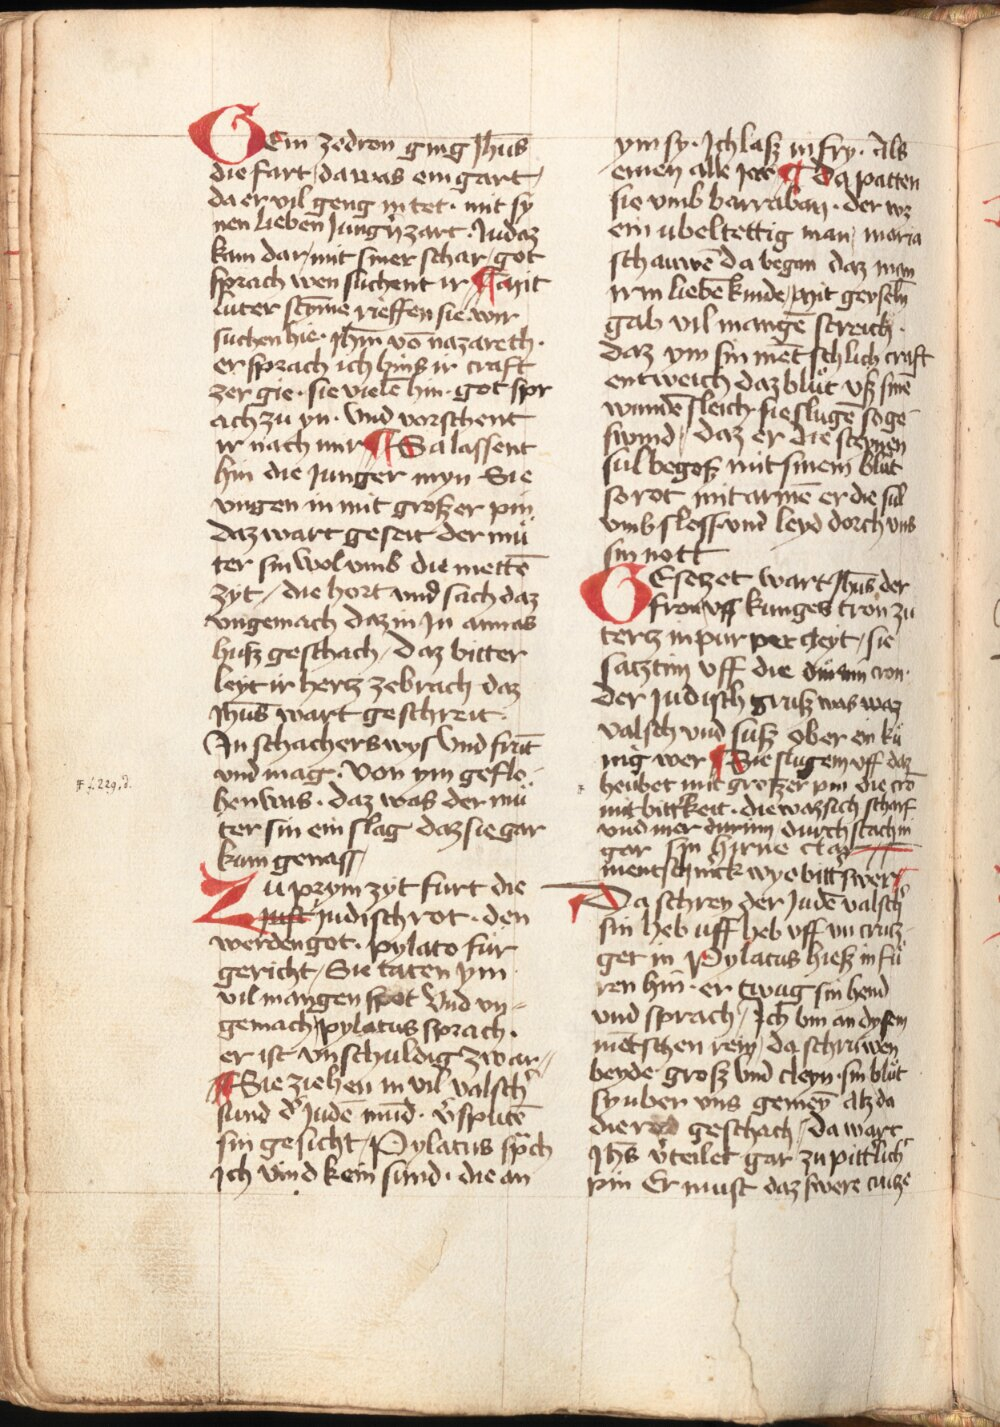 GEin zedron ging Jhūs
die fart / da was ein gart /
da er vil geng in tet · mit sy
nen lieben Jungn̄ zart · Judaz
kam dar / mit siner schar / got
sprach wen suchent ir ¶ Mit
luter stȳme rieffen sie wir
suchen hie · Jhm̄ vō nazareth ·
er sprach ich bins ir craft
zer gie · sie vielē hin · got spr
ach zu yn · Und vorschent
ir nach mir ¶ Sa lassent
hin die Junger myn Sie
vngen in mit großer pin
daz wart geseit der mů
ter sin wol vmb die mettē
zyt / die hort vnd sach daz
vngemach daz in Jn annas
huß geschach / daz bitter
leyt ir hertz zebrach daz
Jhūs wart geschreit ·
Jn schachers wys Und frūt
vnd mag · Von ym geflo
hen was · daz was der mů
ter sin ein slag daz sie gar
kum genass /
ZU prym zyt furt die
Judisch rot · den
werden got · pylato für
gericht / Sie taten ym
vil mangen spot Und vn
gemach / pylatus sprach ·
er ist vnschuldig zwar /
¶ Sie ziehen in vil valsch̄
sund d̄ Judē mūd · v̄sputē
sin gesicht / Pylatus sp̄ch
Ich vind kein sund · die an
ff f. 229, d.
ym sy · Ich laß in fry · Als
einen alle jore ¶ Da patten
sie vmb barraban · der wz
ein ubeltettig man / maria
schauwē da began daz man
irm liebē kinde / Mit geiseln̄
gab vil mangē streich ·
daz ym sin mēt schlich craft
entweich daz blůt vß sinē
wundē sleich · sie slugē so ge
swind / daz er die steynen
sul begoß mit sinem blůt
so rot mit armē er die sul
vmb sloss vnd leyd dorch vns
sin nott
GEsetzet wart Jhūs der
fron uff kunges tron zu
tertz in pur per cleyt / sie
satzt im uff die cron ·
der Judisch gruß was waz
valsch vnd suß ober ein kü
nig wer ¶ Sie slugem uff daz
heubet mit großer pin die crō
mit bitt'keit · die waz sich scharf
vnd mer durch stach in
gar sin hirne clar
ment schrick wye bitt' swer
¶ Da schren der Judē valsch̄
sin heb uff heb uff vn crutz
get in Pylatus hieß in fü
ren hin · er twug sin hend
vnd sprach / Ich bin an dysem
mētschen rein / da schruwen
beyde groß vnd cleyn · sin blůt
sy uber vns gemeȳ Alz da
die red geschach / da wart
Jhs̄ v̄teilet gar zu pitt'lich
pin Er must daz swere crutze